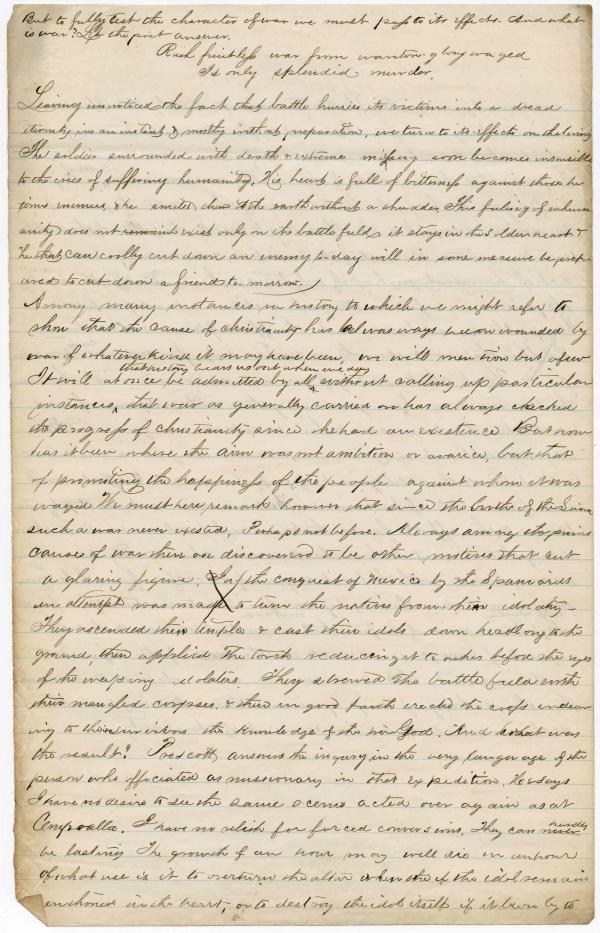 But to fully test the character of war we must pass to its effects. And what
is war? Let the poet answer.
Rash fruitless war from wanton glory waged
Is only splendid murder.
Leaving unnoticed the fact that battle hurries its victims into a dread
eternity in an instant & mostly without preparation, we turn to its effects on the living
The soldier surrounded with death & extreme misery soon becomes insensible
to the cries of suffering humanity, His heart is full of bitterness against those he
terms enemies, & he smites them to the earth without a shudder, This feeling of inhum
anity does not remain exist only on the battle field, it stays in the soldier heart &
he that can coolly cut down an enemy to-day will in some measure be prep-
ared to cut down a friend to-morrow.
Among many instances in history to which we might refer to
show that the cause of christianity has always been wounded by
war of whatever kind it may have been, we will mention but a few
that history bears us out when we say
It will at once be admitted by all without calling up particular
instances, that war as generally carried on has always checked
the progress of christianity since he had an existence But how
has it been where the aim was not ambition or avarice, but that
of promoting the happiness of the people against whom it was
waged We must here remark however that since the birth of the Savior
such a war never existed, Perhaps not before. Always among the prime
cause of war there are discovered to be other motives that cut
a glaring figure, In the conquest of Mexico by the Spaniards
an attempt was made to turn the natives from their idolatry-
They ascended their temples & cast their idols down headlong to the
ground, then applied the torch reducing it to ashes before the eyes
of the weeping idolaters They strewed the battle field with
their mangled corpses, & then in good faith erected the cross endeav
ing to the survivors the knowledge of the true God, And what was
the result? Prescott, answers the inquiry in the very language of the
person who officiated as missionary in that expedition, He says
I have no desire to see the same scenes acted over again as at
Cempoalla. I have no relish for forced conversions, They can never
hardly
be lasting The growth of an hour may well die in an hour
Of what use is it to overturn the altar if the idol remain
enthroned in the heart, or to destroy the idol itself if it were by to